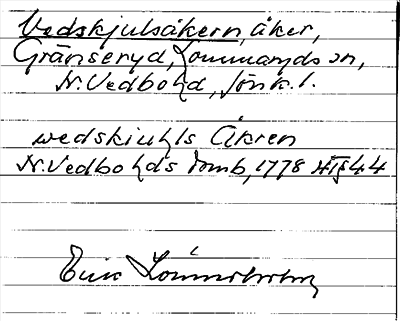 Vedskjulsåkern, åker,
Gränseryd, Lommaryds sn,
N. Vedbo hd, Jönk. l.
wedskiuhls Åkren
N. Vedbo hds domb, 1778 HT § 44
Eric